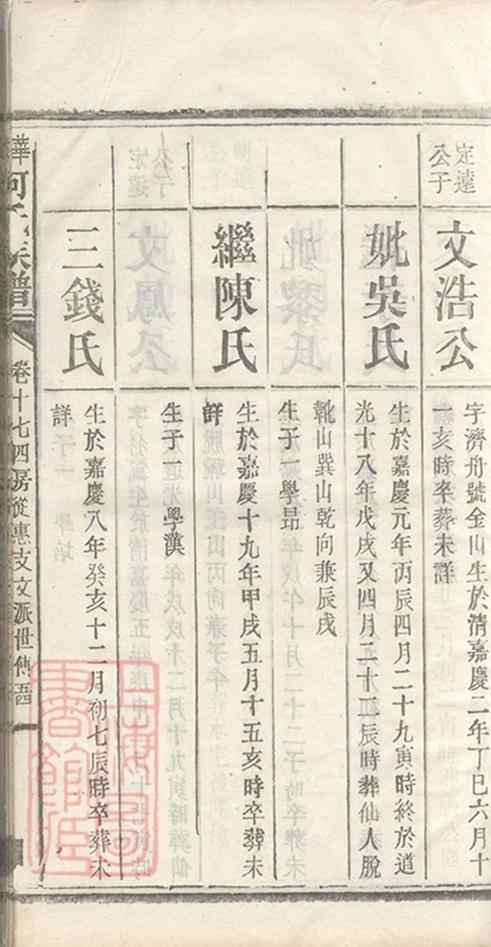 定遠
公子
文浩公
字濟舟號金山生於清嘉慶二年丁巳六月十
一亥時卒葬未詳
妣吳氏
生於嘉慶元年丙辰四月二十九寅時終於道
光十八年戊戌又四月二十二辰時葬仙人脫
靴山巽山乾向兼辰戌
生子一學昂
繼陳氏
生於嘉慶十九年甲戌五月十五亥時卒葬未
詳
生子一學漢
三錢氏
生於嘉慶八年癸亥十二月初七辰時卒葬未
詳
族譜
卷十七四房從惠支文派世傳